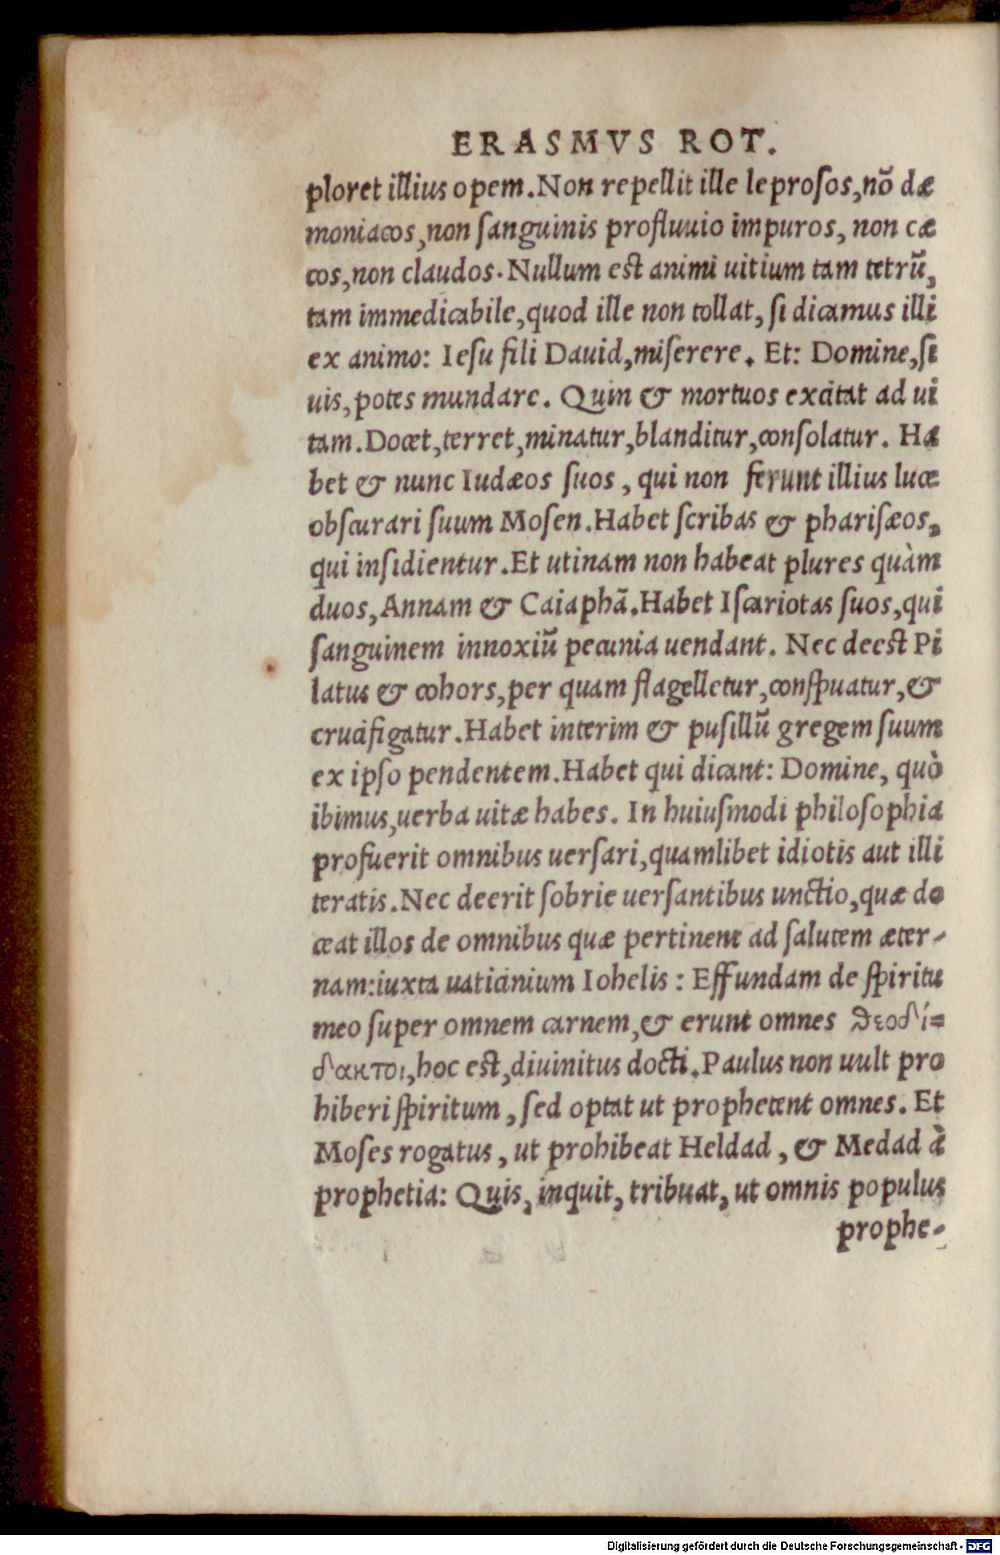 ERASMVS ROT.
ploret illius opem. Non repellit ille leprosos, nõ dæ
moniacos, non sanguinis profluuio impuros, non cæ
cos, non claudos. Nullum est animi uitium tam tetrũ,
tam immedicabile, quod ille non tollat, si dicamus illi
ex animo: Iesu fili Dauid, miserere. Et: Domine, si
uis, potes mundare. Quin & mortuos excitat ad ui
tam. Docet, terret, minatur, blanditur, consolatur. Ha
bet & nunc Iudæos suos, qui non ferunt illius luce
obscurari suum Mosen. Habet scribas & pharisæos,
qui insidientur. Et utinam non habeat plures quàm
duos, Annam & Caiaphã. Habet Iscariotas suos, qui
sanguinem innoxiũ pecunia uendant. Nec deest Pi
latus & cohors, per quam flagelletur, conspuatur, &
crucifigatur. Habet interim & pusillũ gregem suum
ex ipso pendentem. Habet qui dicant: Domine, quò
ibimus, uerba uitæ habes. In huiusmodi philosophia
profuerit omnibus uersari, quamlibet idiotis aut illi
teratis. Nec deerit sobrie uersantibus unctio, quæ do
ceat illos de omnibus quæ pertinent ad salutem æter-
nam: iuxta uaticinium Iohelis: Effundam de spiritu
meo super omnem carnem, & erunt omnes θεοδί=
δακτοι, hoc est, diuinitus docti. Paulus non uult pro
hiberi spiritum, sed optat ut prophetent omnes. Et
Moses rogatus, ut prohibeat Heldad, & Medad à
prophetia: Quis, inquit, tribuat, ut omnis populus
prophe-
Digitalisierung gefördert durch die Deutsche Forschungsgemeinschaft - DFG